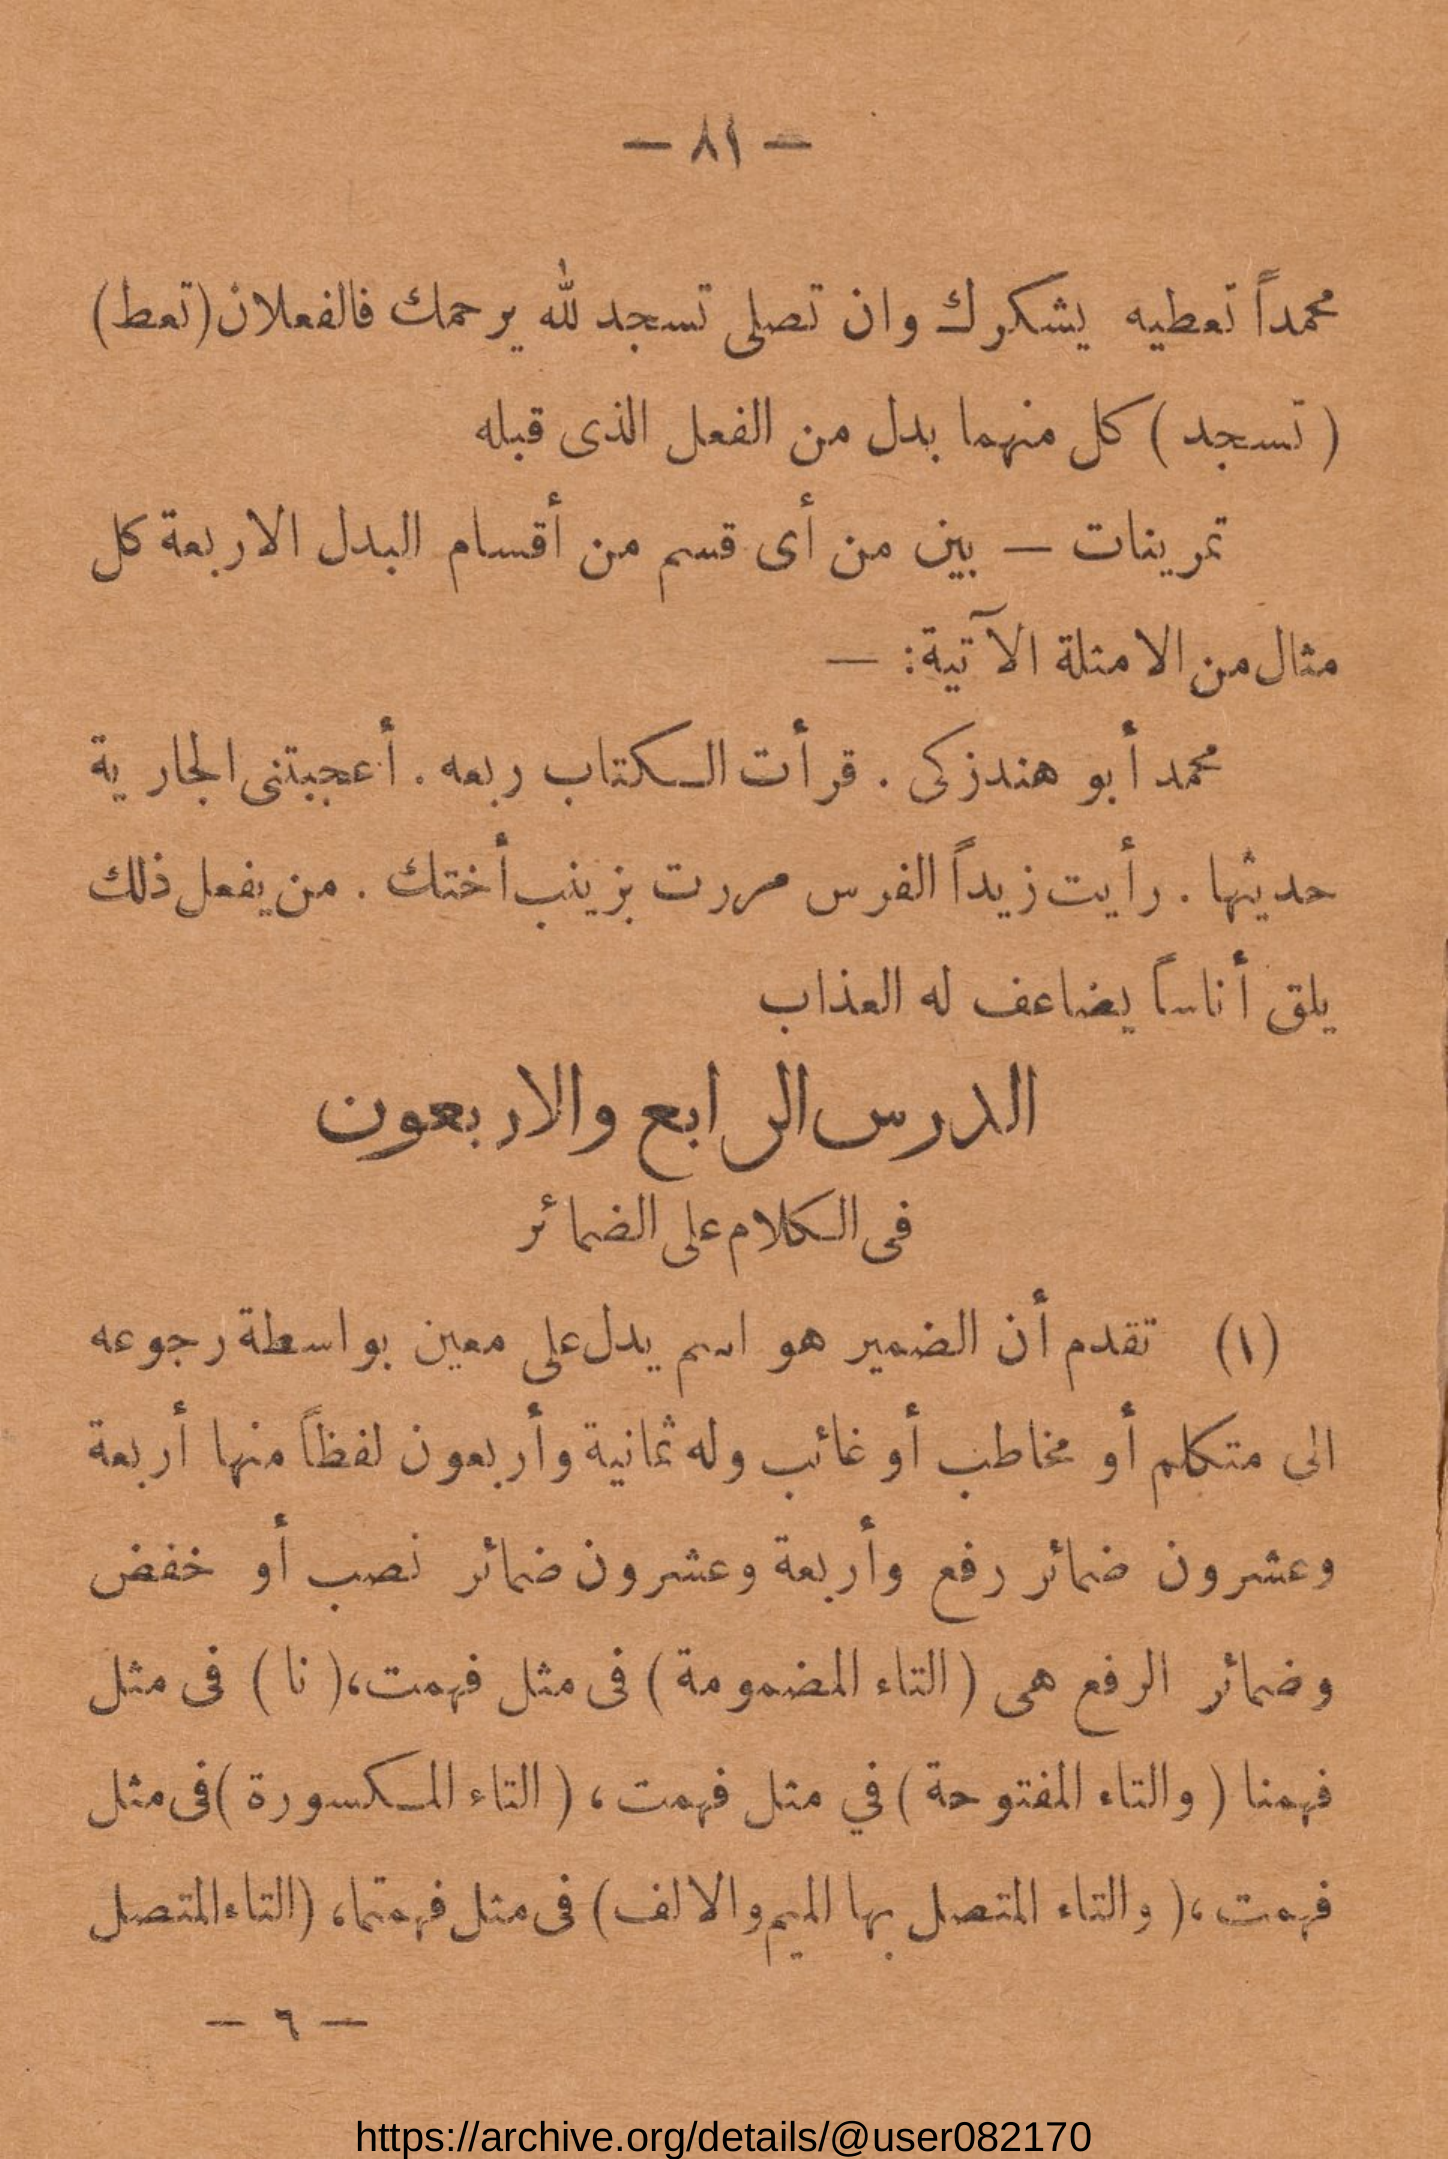 — ٨١ —
محمداً تعطيه يشكرك وان تصلى تسجد لله يرحمك فالفعلان (تعط)
( تسجد ) كل منهما بدل من الفعل الذى قبله
تمرينات — بين من أى قسم من أقسام البدل الاربعة كل
مثال من الامثلة الآتية: —
محمد أبو هند زكى . قرأت الكتاب ربعه . أعجبتنى الجارية
حديثها . رأيت زيداً الفرس مررت بزينب أختك . من يفعل ذلك
يلق أناساً يضاعف له العذاب
الدرس الرابع والاربعون
فى الكلام على الضمائر
(١) تقدم أن الضمير هو اسم يدل على معين بواسطة رجوعه
الى متكلم أو مخاطب أو غائب وله ثمانية وأربعون لفظاً منها أربعة
وعشرون ضمائر رفع وأربعة وعشرون ضمائر نصب أو خفض
وضمائر الرفع هى ( التاء المضمومة ) فى مثل فهمت، ( نا ) فى مثل
فهمنا ( والتاء المفتوحة ) في مثل فهمت ، ( التاء المكسورة ) فى مثل
فهمت ، ( والتاء المتصل بها الميم والالف ) فى مثل فهمتما، (التاء المتصل
— ٦ —
https://archive.org/details/@user082170